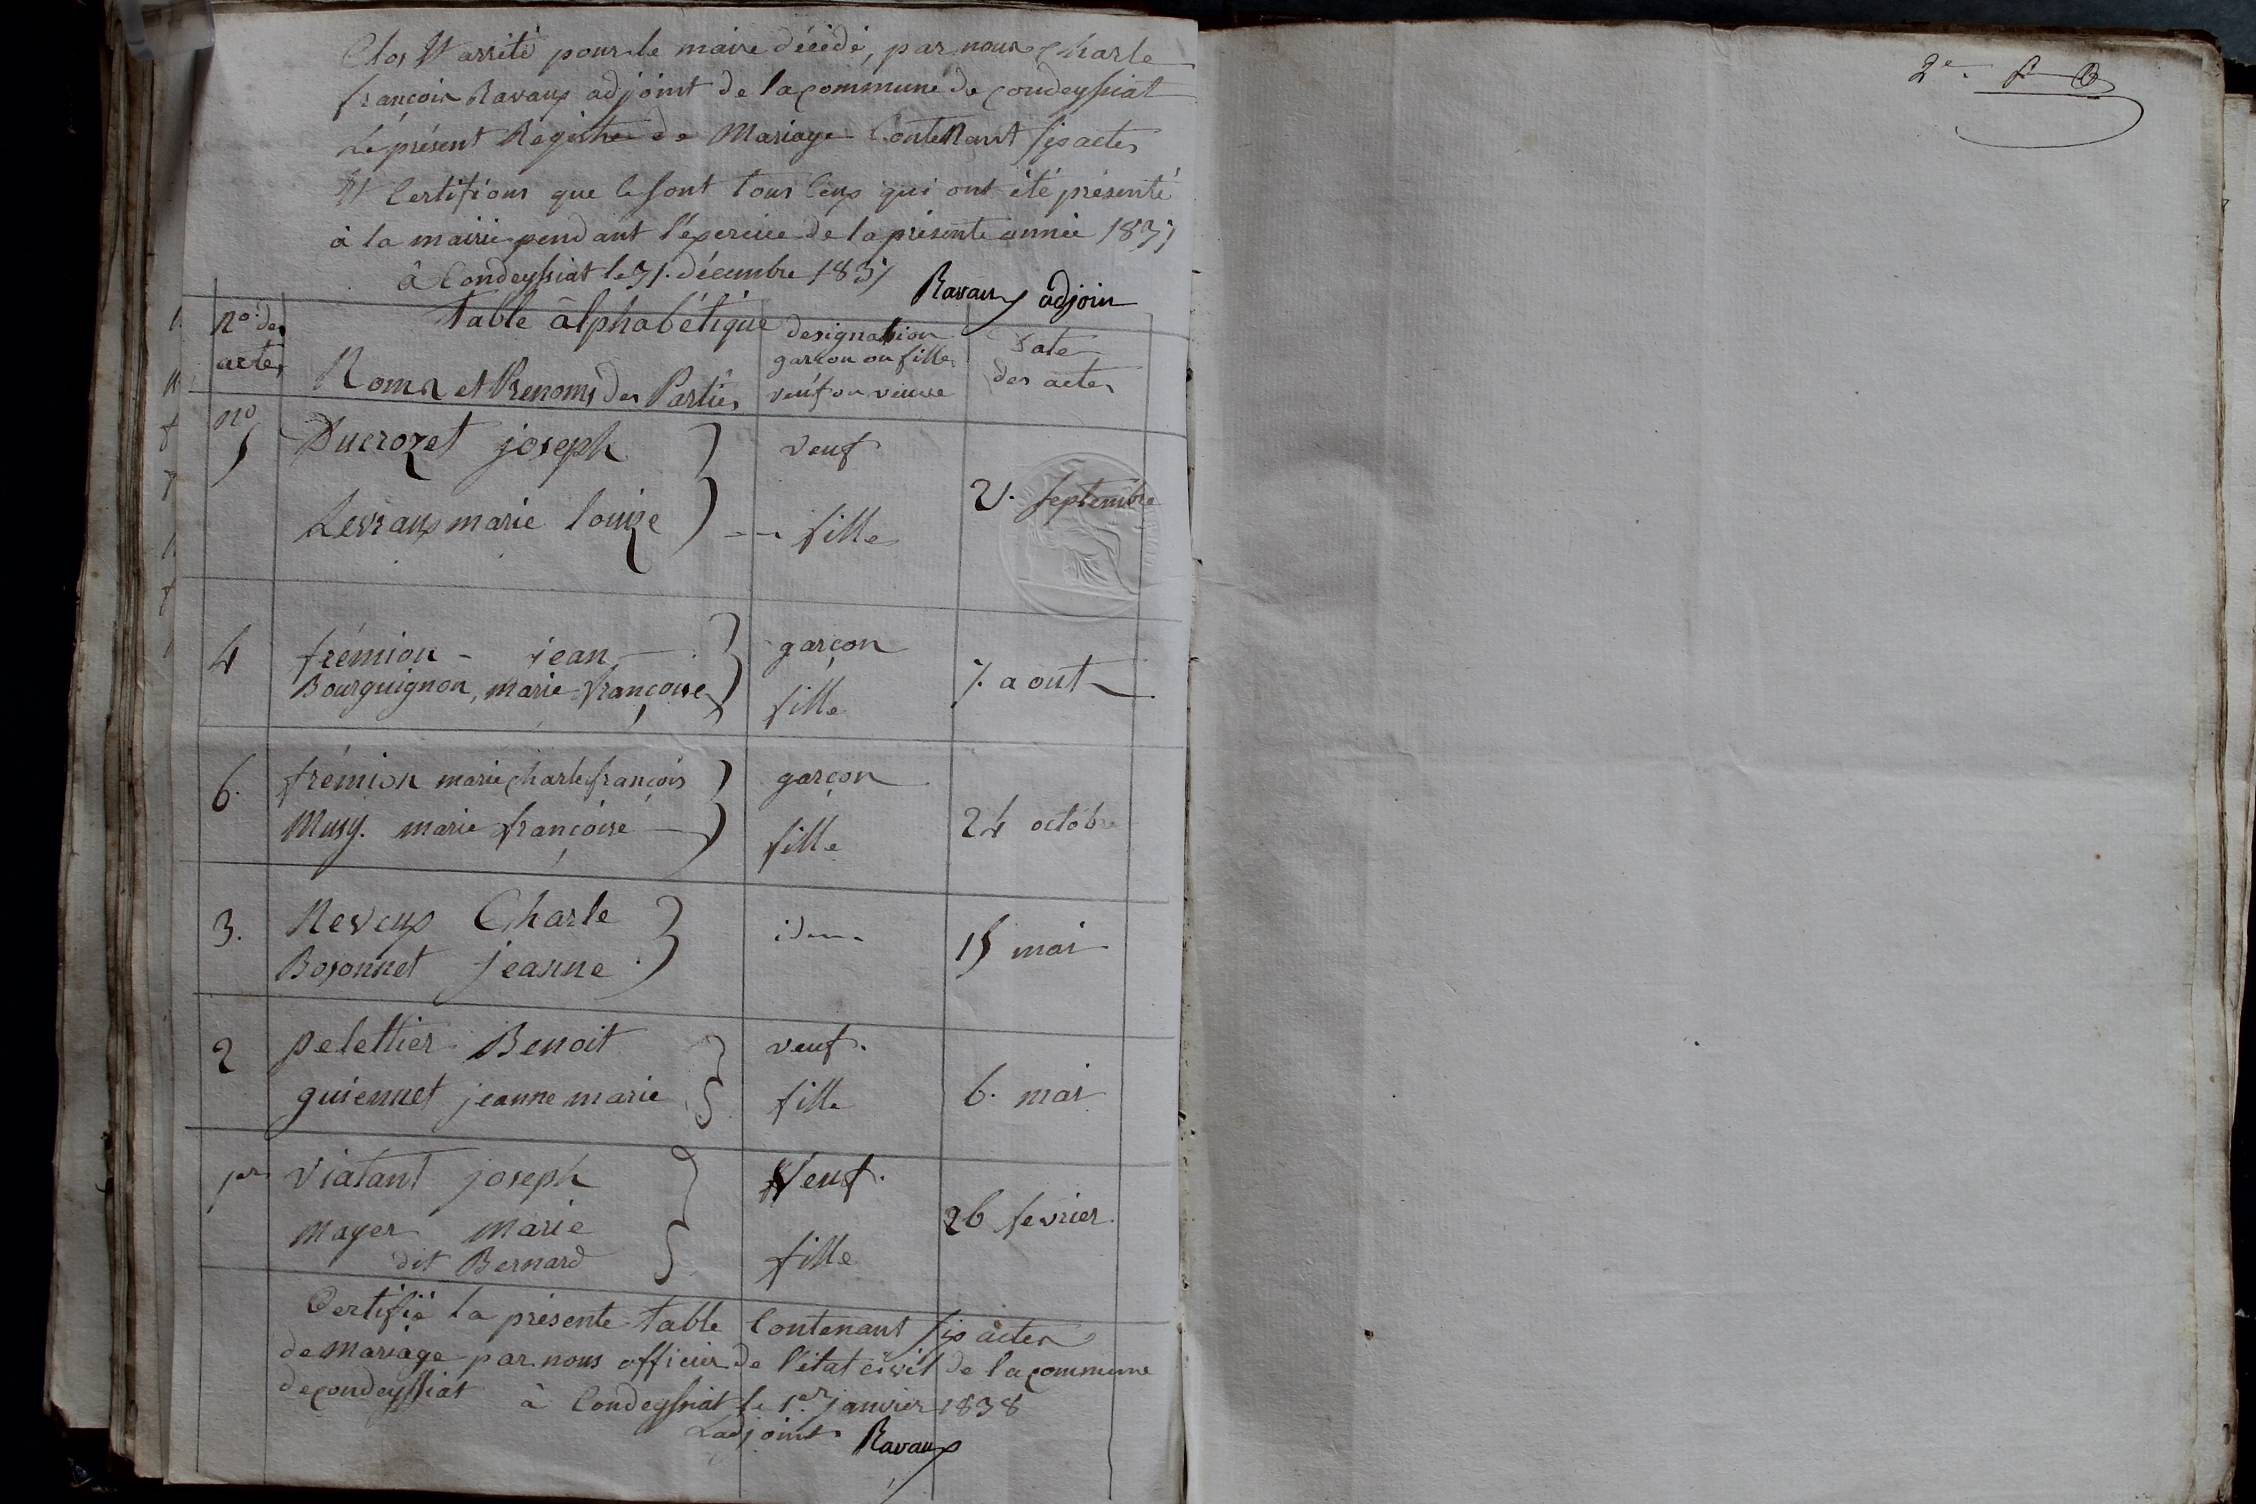 Clos et arrété pour le maire décédé, par nous Charle
françois Ravaux adjoint de la commune de Condeyssiat
Le présent Registre de Mariage Contenant six actes
et Certifions que ce sont tous ceux qui ont été présenté
à la mairie pendant l'exercice de la présente année 1837
à Condeyssiat le 31. décembre 1837
Ravaux adjoin
Table alphabétique
no. des actes
Noms et Prenoms des Parties
designation garçon ou fille veuf ou veuve
date des actes
no 5
Ducrozet joseph
veuf
2. septembre
Levraux marie louize
fille
4
frémion - jean
garçon
7. aout
Bourguignon, marie françoise
fille
6.
frémion marie charle françois
garçon
24 octobre
Musy. marie françoise
fille
3.
Neveux Charle
idem
15 mai
Bozonnet jeanne
2
pelettier Benoit
veuf.
6. mai
guiennet jeanne marie
fille
1er
Viatant joseph
Veuf.
26 fevrier.
Mayer Marie
fille
dit Bernard
Certifié la présente table Contenant six actes
de Mariage par nous officier de l'état civil de la commune
de Condeyssiat à Condeyssiat le 1er janvier 1838
Ladjoint Ravaux
2e.